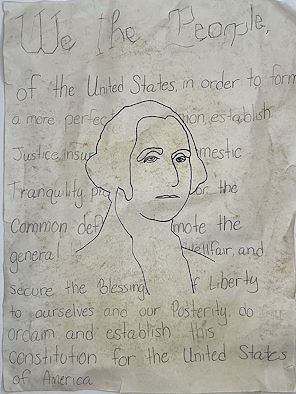 We the People,
of the United States, in order to form
a more perfec on, establish
Justice, insu mestic
Tranquility, pr or the
Common def mote the
general Wellfair, and
secure the Blessing f Liberty
to ourselves and our Posterity, do
ordain and establish this
Constitution for the United States
of America